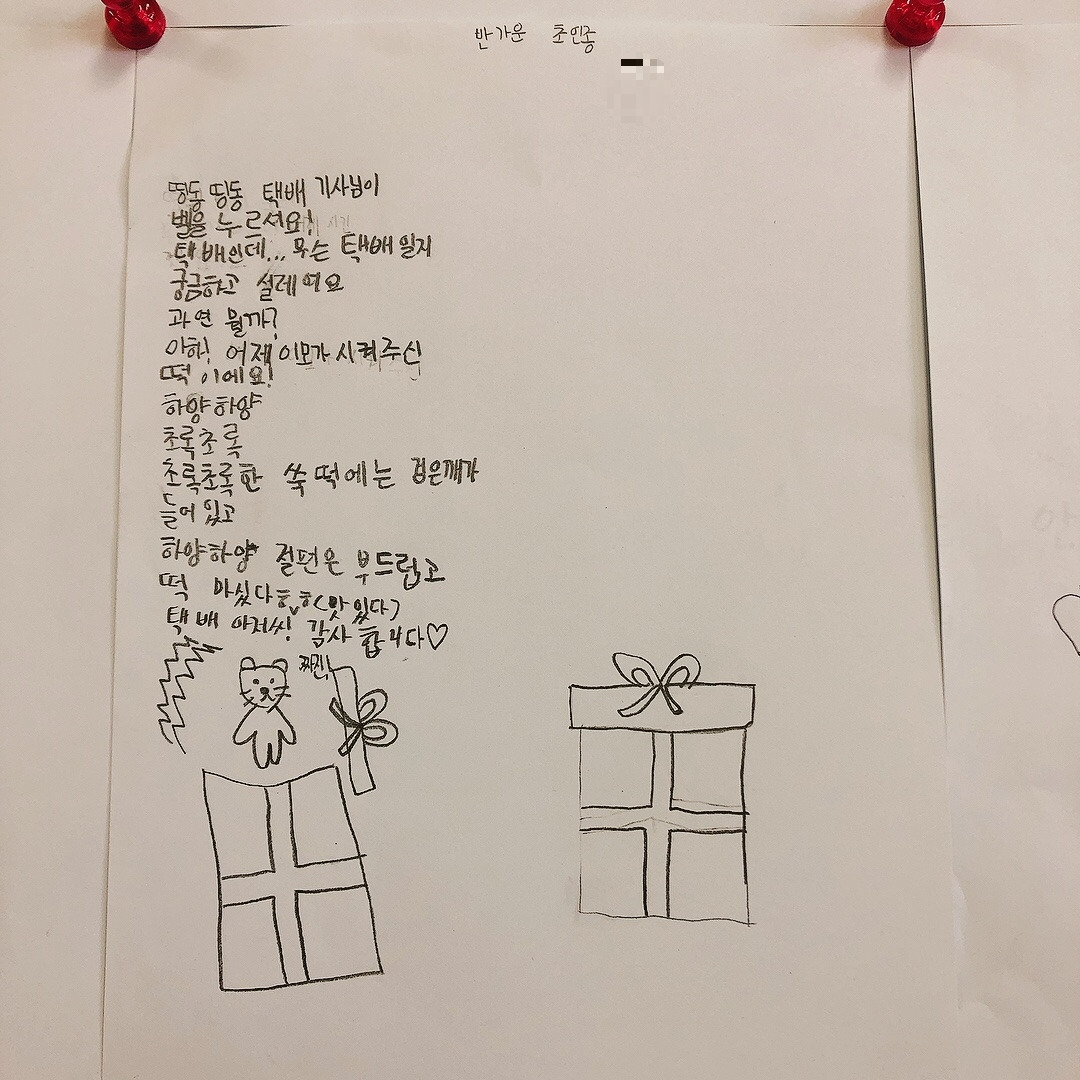 반가운 초인종
띵동 띵동 택배 기사님이
벨을 누르셔요!
택배인데... 무슨 택배일지
궁금하고 설레여요
과연 뭘까?
아하! 어제 이모가 시켜주신
떡이에요!
하양하양
초록초록
초록초록한 쑥떡에는 검은깨가
들어있고
하양하양 절편은 부드럽고
떡 마싰다ㅎㅎ(맛있다)
택배 아저씨! 감사합니다♡
짜잔!